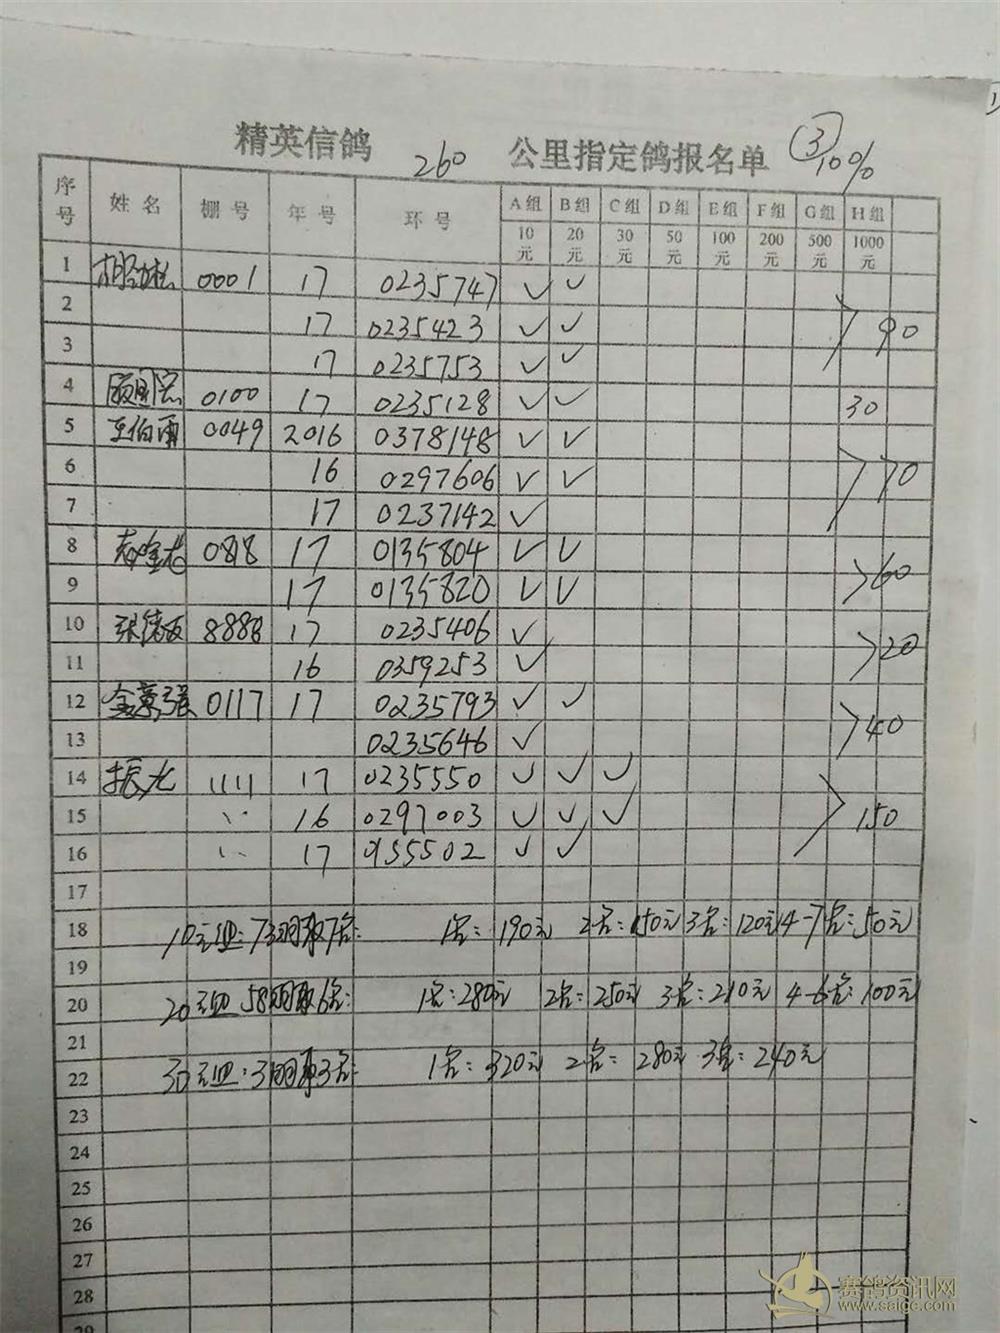 精英信鸽 260 公里指定鸽报名单 ③ 10%
序号 姓名 棚号 年号 环号 A组 B组 C组 D组 E组 F组 G组 H组
10元 20元 30元 50元 100元 200元 500元 1000元
1 0001 17 0235747 ✓ ✓
2 17 0235423 ✓ ✓ 90
3 17 0235753 ✓ ✓
4 0100 17 0235128 ✓ ✓ 30
5 王伯雨 0049 2016 0378148 ✓ ✓
6 16 0297606 ✓ ✓ 70
7 17 0237142 ✓
8 0818 17 0135804 ✓ ✓
9 17 0135820 ✓ ✓ 60
10 8888 17 0235406 ✓
11 16 0359253 ✓ 20
12 0117 17 0235793 ✓ ✓
13 0235646 ✓ 40
14 振龙 1111 17 0235550 ✓ ✓ ✓
15 〃 16 0297003 ✓ ✓ ✓ 150
16 〃 17 0155502 ✓ ✓
17
18 10元组:73羽取7名: 1名:190元 2名:150元 3名:120元 4-7名:50元
19
20 20元组 58羽取6名: 1名:280元 2名:250元 3名:210元 4-6名:100元
21
22 30元组:31羽取3名: 1名:320元 2名:280元 3名:240元
23
24
25
26
27
28
29
赛鸽资讯网
www.saige.com